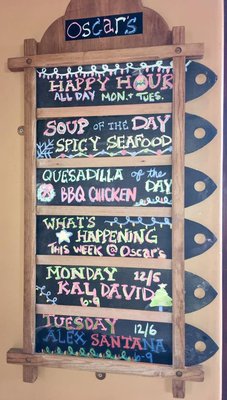 OSCAR'S
HAPPY HOUR
ALL DAY MON. + TUES.
SOUP OF THE DAY
SPICY SEAFOOD
QUESADILLA of the
BBQ CHICKEN DAY
WHAT'S
HAPPENING
THIS WEEK @ OSCAR'S
MONDAY 12/5
KAL DAVID
6-9
TUESDAY 12/6
ALEX SANTANA
6-9